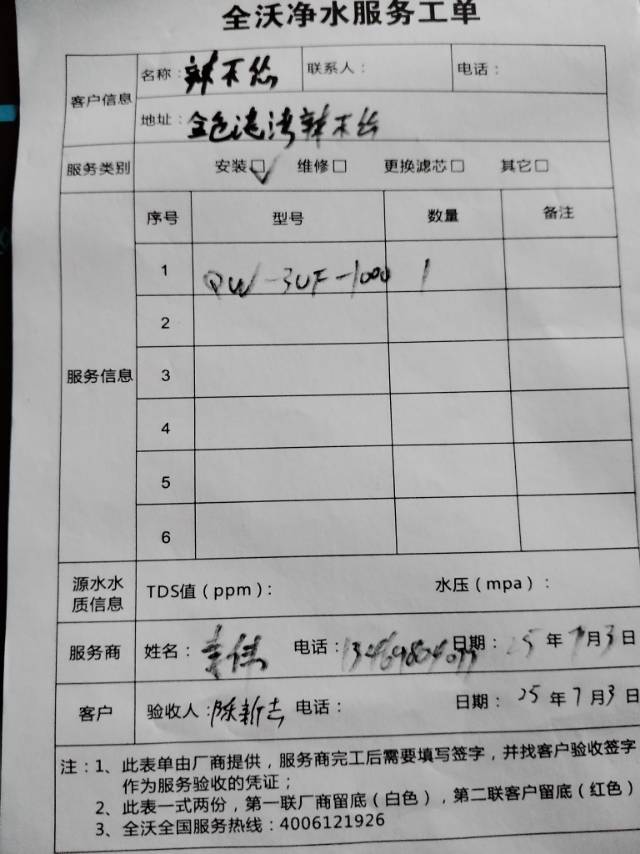 全沃净水服务工单
客户信息
名称：辣不怂 联系人： 电话：
地址：金色港湾辣不怂
服务类别 安装□✓ 维修□ 更换滤芯□ 其它□
服务信息
序号 型号 数量 备注
1 QW-3UF-1000 1
2
3
4
5
6
源水水质信息 TDS值（ppm）： 水压（mpa）：
服务商 姓名： 电话： 日期：25年7月3日
客户 验收人：陈新 电话： 日期：25年7月3日
注：1、此表单由厂商提供，服务商完工后需要填写签字，并找客户验收签字
作为服务验收的凭证；
2、此表一式两份，第一联厂商留底（白色），第二联客户留底（红色）
3、全沃全国服务热线：4006121926